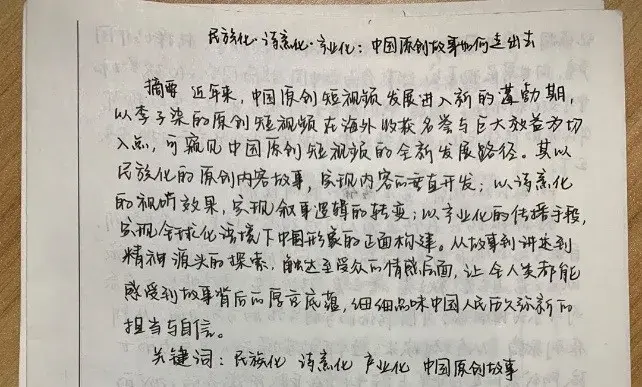 民族化·诗意化·产业化：中国原创故事如何走出去
摘要 近年来，中国原创短视频发展进入新的蓬勃期，
以李子柒的原创短视频在海外收获名誉与巨大效益为切
入点，可窥见中国原创短视频的全新发展路径。其以
民族化的原创内容故事，实现内容的垂直开发；以诗意化
的视听效果，实现叙事逻辑的转变；以产业化的传播手段，
实现全球化语境下中国形象的正面构建。从故事到讲述到
精神源头的探索，触达至受众的情感层面，让全人类都能
感受到故事背后的厚宫底蕴，细细品味中国人民历久弥新的
担当与自信。
关键词：民族化 诗意化 产业化 中国原创故事